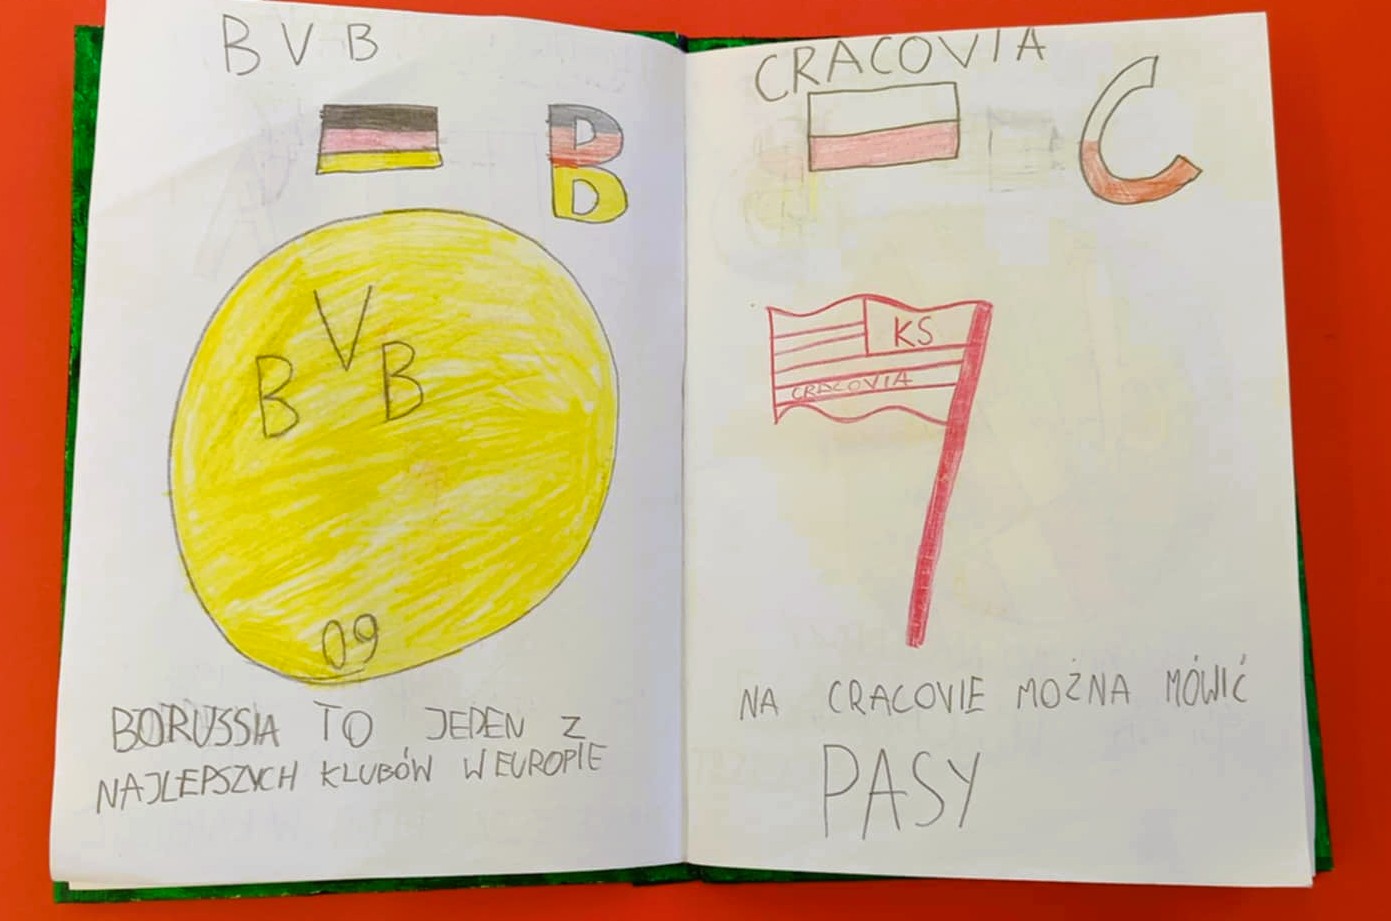 BVB
B
V
B B
09
BORUSSIA TO JEDEN Z
NAJLEPSZYCH KLUBÓW W EUROPIE
CRACOVIA
C
KS
CRACOVIA
NA CRACOVIE MOŻNA MÓWIĆ
PASY